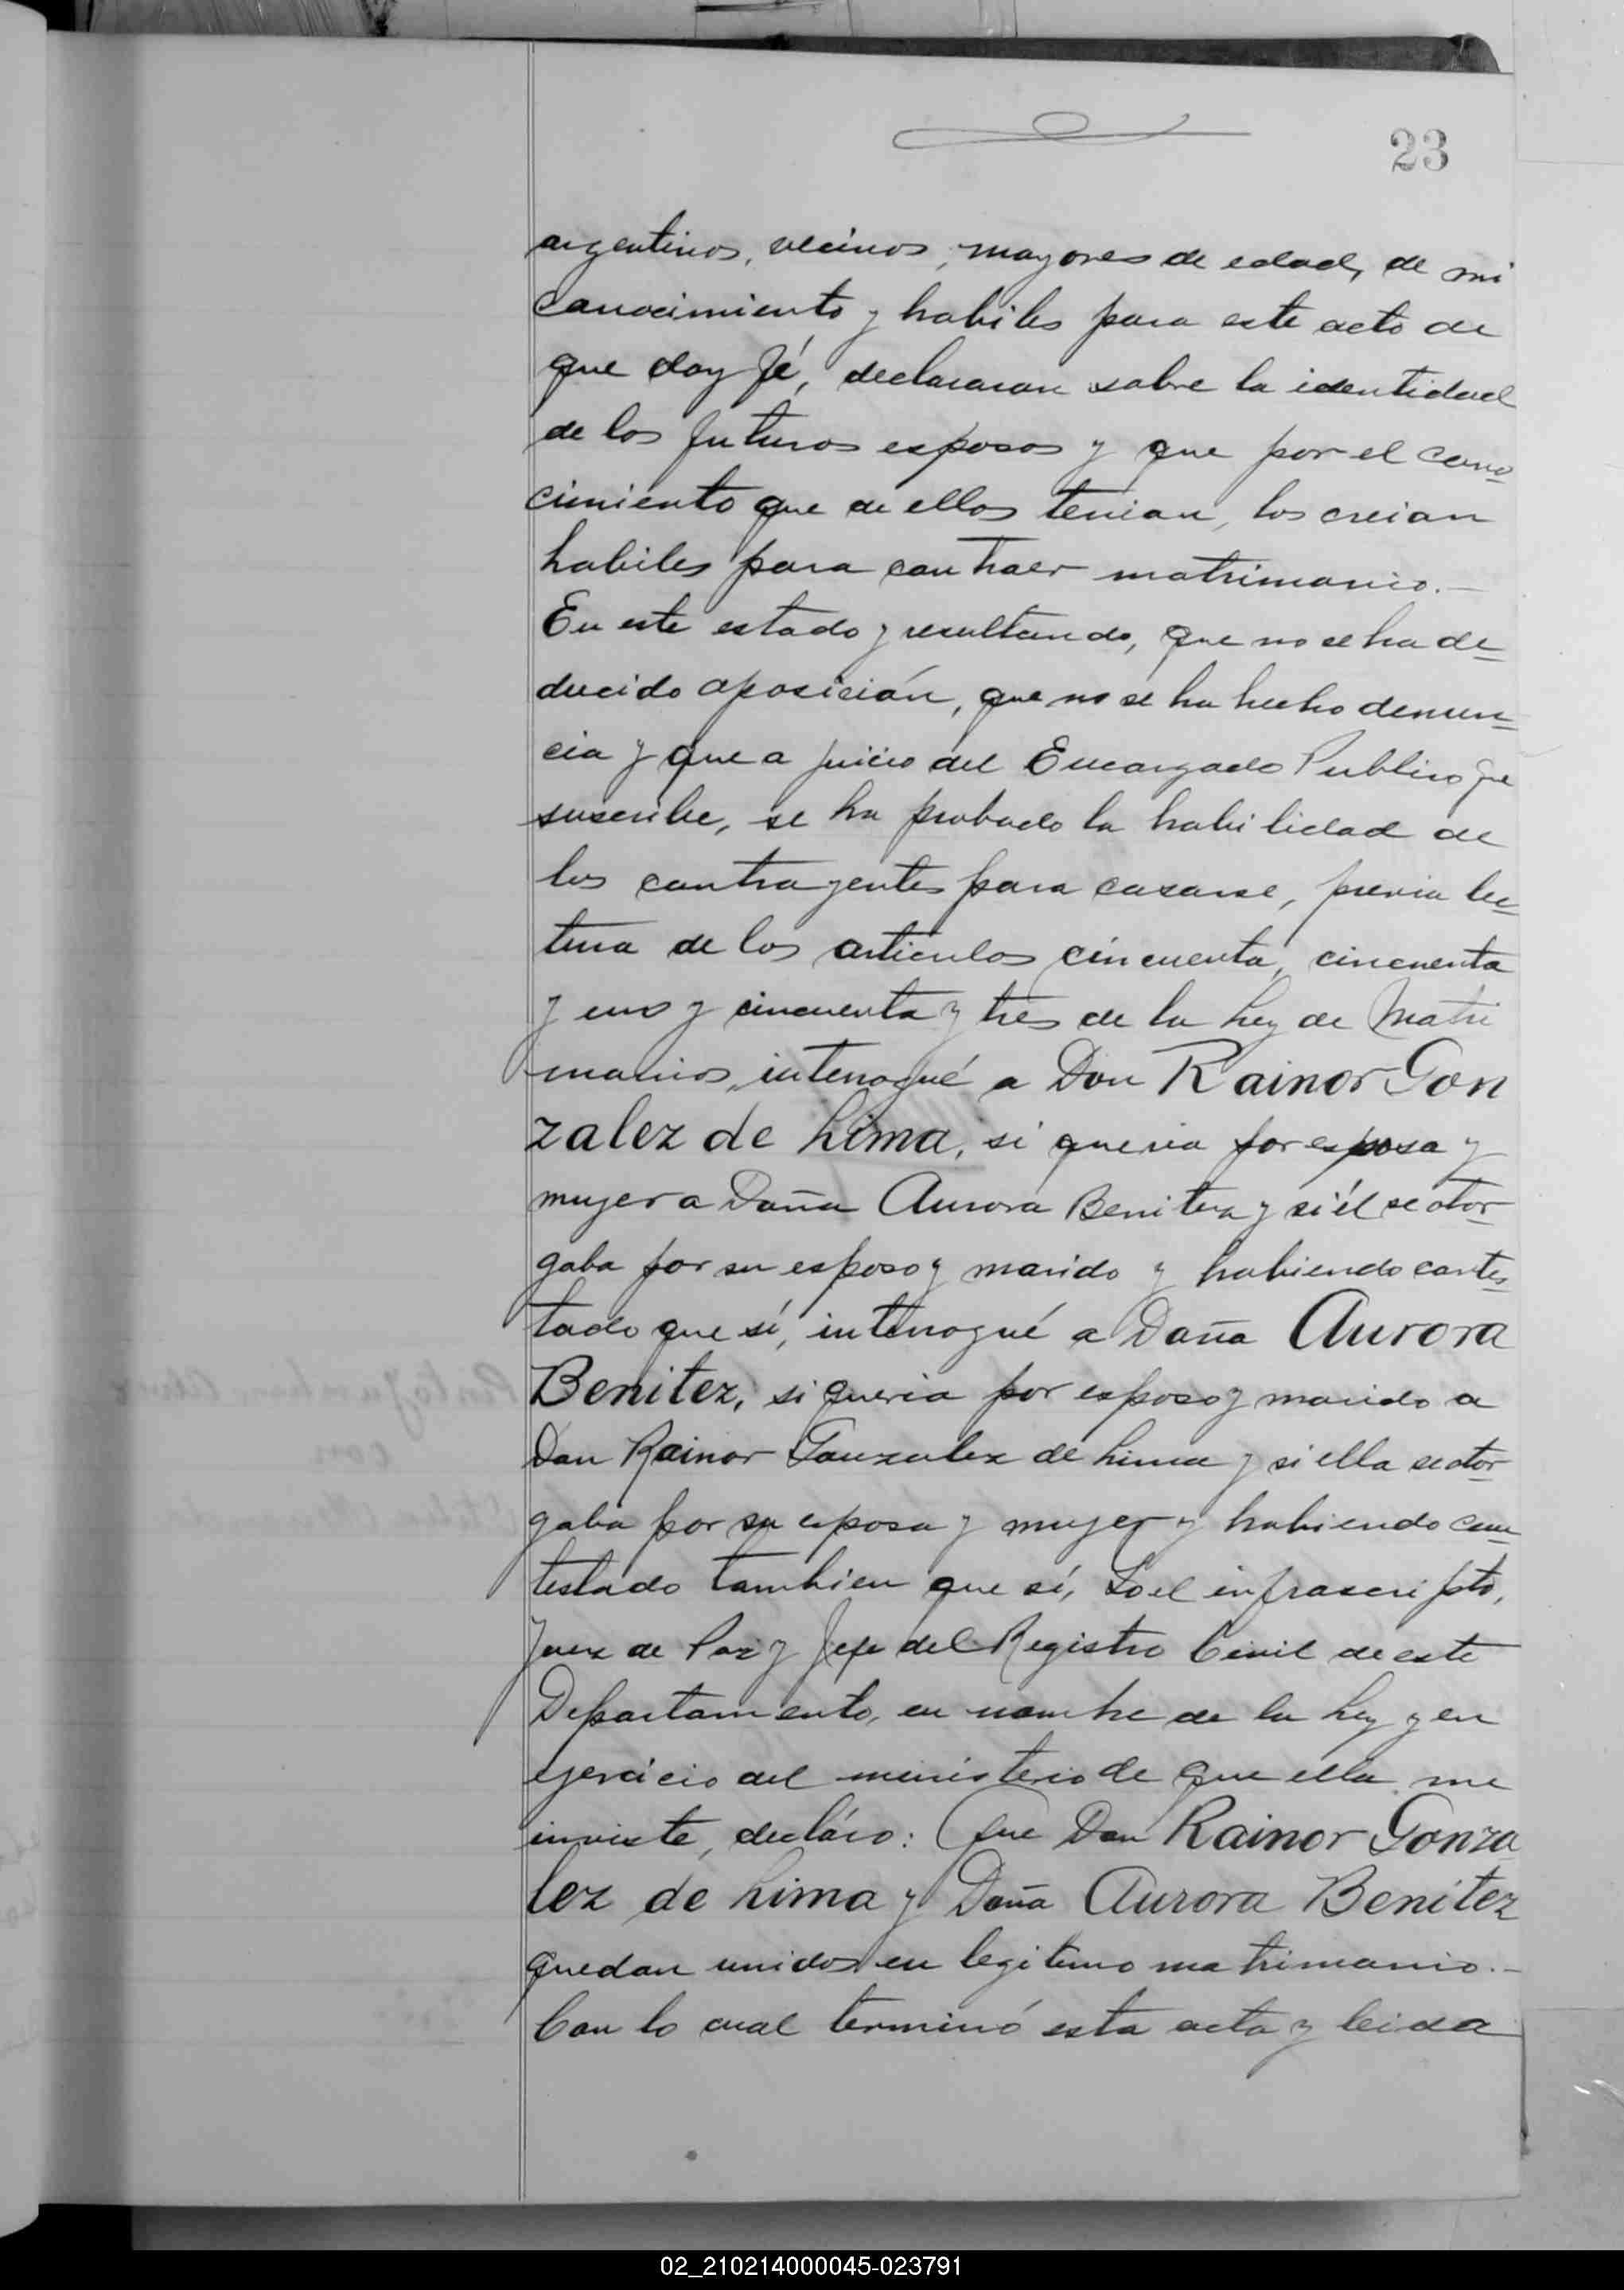 23
argentinos, vecinos, mayores de edad, de mi
conocimiento y habiles para este acto de
que doy fé, declararon sobre la identidad
de los futuros esposos y que por el cono
cimiento que de ellos tenian, los creian
habiles para contraer matrimonio.-
En este estado y resultando, que no se ha de
ducido oposición, que no se ha hecho denun
cia y que a juicio del Encargado Publico que
suscribe, se ha probado la habilidad de
los contrayentes para casarse, previa lec
tura de los articulos cincuenta, cincuenta
y uno y cincuenta y tres de la Ley de Matri
monios, interrogué a Don Rainor Gon
zalez de Lima, si queria por esposa y
mujer a Doña Aurora Benitez y si él se otor
gaba por su esposo y marido y habiendo contes
tado que sí, interrogué a Doña Aurora
Benitez, si queria por esposo y marido a
Don Rainor Gonzalez de Lima y si ella se otor
gaba por su esposa y mujer y habiendo con
testado tambien que sí, Yo el infrascripto,
Juez de Paz y Jefe del Registro Civil de este
Departamento, en nombre de la Ley y en
ejercicio del ministerio de que ella me
inviste, decláro: Que Don Rainor Gonza
lez de Lima y Doña Aurora Benitez
quedan unidos en legitimo matrimonio.-
Con lo cual terminó esta acta y leida
02_210214000045-023791